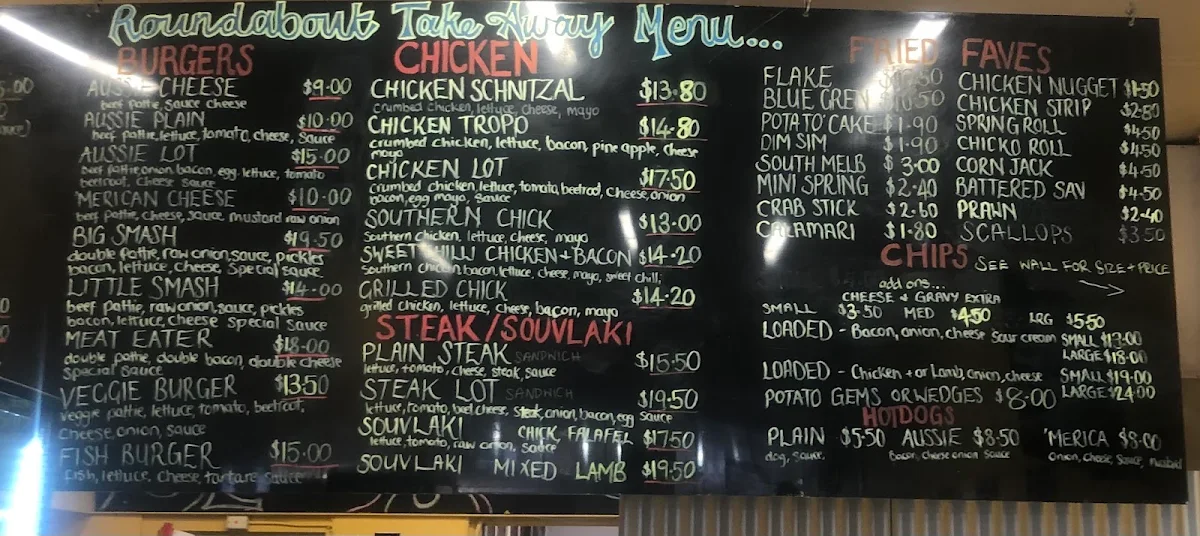 Roundabout Take Away Menu...
BURGERS
AUSSIE CHEESE $9.00
beef pattie, sauce cheese
AUSSIE PLAIN $10.00
beef pattie, lettuce, tomato, cheese, sauce
AUSSIE LOT $15.00
beef pattie, onion, bacon, egg, lettuce, tomato
beetroot, cheese sauce
MERICAN CHEESE $10.00
beef pattie, cheese, sauce, mustard raw onion
BIG SMASH $19.50
double pattie, raw onion, sauce, pickles
bacon, lettuce, cheese, special sauce
LITTLE SMASH $14.00
beef pattie, raw onion, sauce, pickles
bacon, lettuce, cheese special sauce
MEAT EATER $18.00
double pattie, double bacon, double cheese
special sauce
VEGGIE BURGER $13.50
veggie pattie, lettuce, tomato, beetroot,
cheese, onion, sauce
FISH BURGER $15.00
fish, lettuce, cheese, tartare sauce
CHICKEN
CHICKEN SCHNITZAL $13.80
crumbed chicken, lettuce, cheese, mayo
CHICKEN TROPO $14.80
crumbed chicken, lettuce, bacon, pineapple, cheese
mayo
CHICKEN LOT $17.50
crumbed chicken, lettuce, tomato, beetroot, cheese, onion
bacon, egg mayo, sauce
SOUTHERN CHICK $13.00
Southern chicken, lettuce, cheese, mayo
SWEET CHILLI CHICKEN+BACON $14.20
Southern chicken, bacon, lettuce, cheese, mayo, sweet chilli,
GRILLED CHICK $14.20
grilled chicken, lettuce, cheese, bacon, mayo
STEAK/SOUVLAKI
PLAIN STEAK SANDWICH $15.50
lettuce, tomato, cheese, steak, sauce
STEAK LOT SANDWICH $19.50
lettuce, tomato, beet, cheese, steak, onion, bacon, egg sauce
SOUVLAKI CHICK, FALAFEL $17.50
lettuce, tomato, raw onion, sauce
SOUVLAKI MIXED LAMB $19.50
FRIED FAVES
FLAKE
BLUE GREN
POTATO CAKE $1.90
DIM SIM $1.90
SOUTH MELB $3.00
MINI SPRING $2.40
CRAB STICK $2.60
CALAMARI $1.80
CHICKEN NUGGET $1.50
CHICKEN STRIP $2.80
SPRING ROLL $4.50
CHICKO ROLL $4.50
CORN JACK $4.50
BATTERED SAV $4.50
PRAWN $2.40
SCALLOPS $3.50
CHIPS SEE WALL FOR SIZE + PRICE
add ons...
CHEESE & GRAVY EXTRA
SMALL $3.50 MED $4.50 LRG $5.50
LOADED - Bacon, onion, cheese sour cream SMALL $13.00
LARGE $18.00
LOADED - Chicken + or Lamb, onion, cheese SMALL $19.00
LARGE $24.00
POTATO GEMS OR WEDGES $8.00
HOTDOGS
PLAIN $5.50 AUSSIE $8.50 'MERICA $8.00
dog, sauce, Bacon, cheese onion sauce Onion, cheese, sauce, mustard